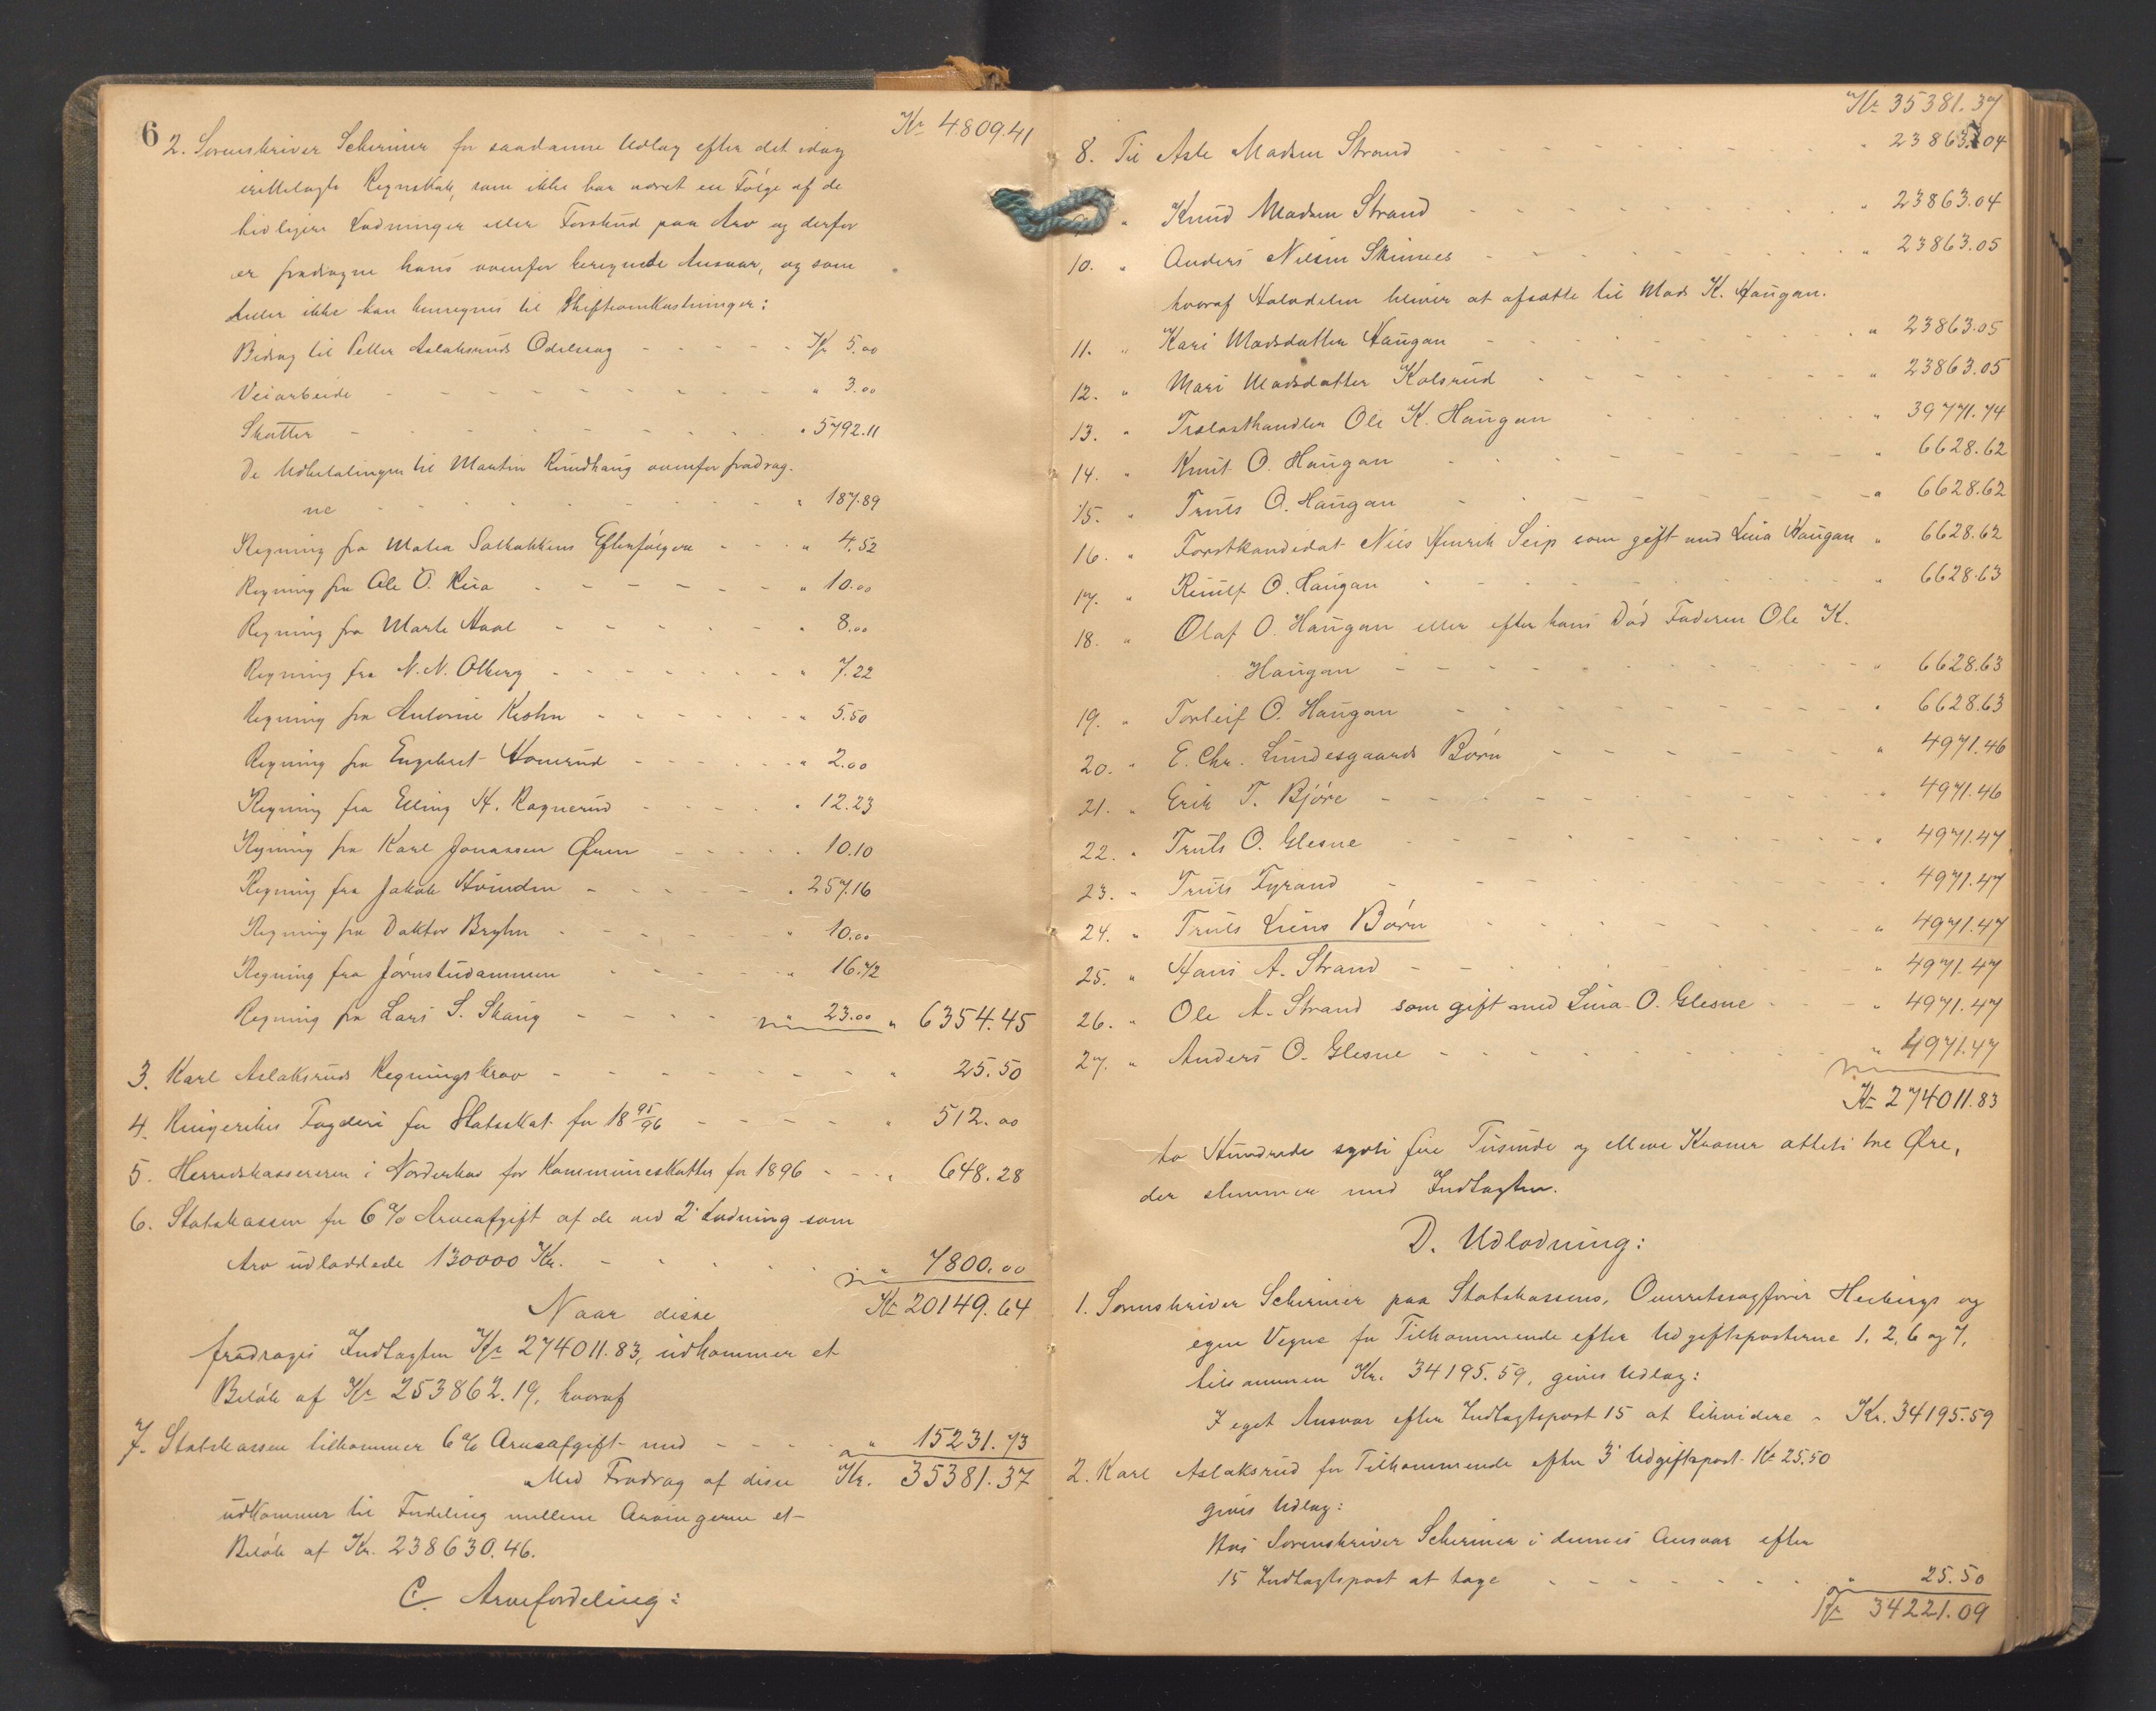 6
Kr 4809.41
2. Sorenskriver Scheriner for saadanne Udlæg efter det idag
irettelagte Regnskab, som ikke har været en Følge af de
tidligere Lodninger eller Forskud paa Arv og derfor
er fradragne hans ovenfor beregnede Ansvar, og som
heller ikke kan henregnes til Skifteomkostninger:
Bidrag til Petter Aslaksruds Odelssag - - - - Kr 5.00
Veiarbeide - - - - - - - - " 3.00
Skatter - - - - - - - - " 5792.11
De Udbetalinger til Martin Rundhaug ovenfor fradrag-
ne - - - - - - - - " 187.89
Regning fra Efterfølgere - - - " 4.52
Regning fra Ole O. Rua - - - - - - " 10.00
Regning fra Marte Haal - - - - - " 8.00
Regning fra N. N. Olberg - - - - - - " 7.22
Regning fra Antonie Krohn - - - - - - " 5.50
Regning fra Engebret Honerud - - - - - " 2.00
Regning fra Elling H. Ragnerud - - - - " 12.23
Regning fra Karl Jonassen Øum - - - - " 10.10
Regning fra Jakob Hvinden - - - - - " 257.16
Regning fra Doktor Bryhn - - - - - - " 10.00
Regning fra Jørnstudammen - - - - - " 16.72
Regning fra Lars S. Skaug - - - - " 23.00 " 6354.45
3. Karl Aslaksruds Regningskrav - - - - - - - - " 25.50
4. Ringerikes Fogderi for Statsskat for 18 95/96 - - - - - " 512.00
5. Herredskassereren i Norderhov for Kommuneskatter for 1896 - - " 648.28
6. Statskassen for 6 % Arveafgift af de ved 2' Lodning som
Arv udloddede 130000 Kr. - - - - - " 7800.00
Naar disse Kr 20149.64
fradrages Indtægten Kr 274011.83, udkommer et
Beløb af Kr 253862.19, hvoraf
7. Statskassen tilkommer 6 % Arveafgift med - - - - " 15231.73
Med Fradrag af disse Kr. 35381.37
udkommer til Fordeling mellem Arvingerne et
Beløb af Kr. 238630.46.
C. Arvefordeling:
Kr 35381.37
8. Til Asle Madsen Strand - - - - - - - - - " 23863.04
" Knud Madsen Strand - - - - - - - - - " 23863.04
10. " Anders Nilsen Skinnes - - - - - - - - " 23863.05
hvoraf Halvdelen bliver at afsætte til Mads K. Haugan.
11. " Kari Madsdatter Haugan - - - - - - - - " 23863.05
12. " Mari Madsdatter Kolsrud - - - - - - - " 23863.05
13. " Trælasthandler Ole K. Haugan - - - - - - " 39771.74
14. " Knut O. Haugan - - - - - - - - " 6628.62
15. " Truls O. Haugan - - - - - - - - " 6628.62
16. " Forstkandidat Nils Henrik Seip som gift med Lina Haugan " 6628.62
17. " O. Haugan - - - - - - - - - " 6628.63
18. " Olaf O. Haugan eller efter hans Død Faderen Ole K.
Haugan - - - - - - - - - " 6628.63
19. " Torleif O. Haugan - - - - - - - - - " 6628.63
20. " E. Chr. Lundesgaards Børn - - - - - - " 4971.46
21. " Erik T. Bjøre - - - - - - - - - - " 4971.46
22. " Truls O. Glesne - - - - - - - - - " 4971.47
23. " Truls Fyrand - - - - - - - - - - " 4971.47
24. " Truls Liens Børn - - - - - - - - " 4971.47
25. " Hans A. Strand - - - - - - - - - " 4971.47
26. " Ole A. Strand som gift med Lina O. Glesne - - - " 4971.47
27. " Anders O. Glesne - - - - - - - - - " 4971.47
Kr 274011.83
to Hundrede sytti fire Tusinde og elleve Kroner otteti tre Øre,
der stemmer med Indtægten.
D. Udlodning:
1. Sorenskriver Scheriner paa Statskassens, Overretssagfører Heibergs og
egne Vegne for Tilkommende efter Udgiftsposterne 1, 2, 6 og 7,
tilsammen Kr. 34195.59, gives Udlæg:
I eget Ansvar efter Indtægtspost 15 at likvidere - Kr. 34195.59
2. Karl Aslaksrud for Tilkommende efter 3' Udgiftspost Kr 25.50
gives Udlæg:
Hos Sorenskriver Scheriner i dennes Ansvar efter
15 Indtægtspost at tage - - - - - - - - " 25.50
Kr 34221.09